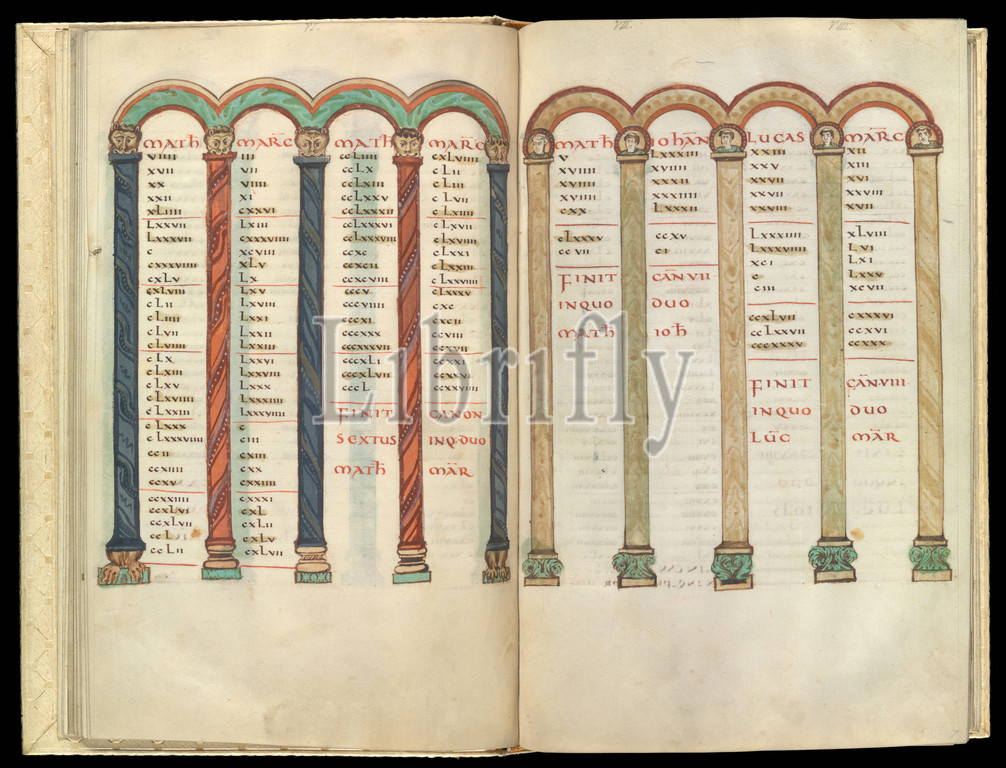 VI.
MATH
vIIII
xvII
xx
xxII
xLIIII
Lxxvii
Lxxxvii
c
cxxxviiii
cxLv
cxLviii
cLii
cLiiii
cLvii
cLviiii
cLx
cLxiii
cLxv
cLxviiii
cLxxiii
cLxxx
cLxxxviiii
ccii
ccxiiii
ccxv
ccxxiiii
ccxLvi
ccxLvii
ccL
ccLii
MARC
iii
vii
viiii
xi
cxxvi
Lxiii
cxxxviiii
xcviii
xLv
Lx
Lxv
Lxviii
Lxxi
Lxxii
Lxxiii
Lxxvi
Lxxvii
Lxxx
Lxxxiii
Lxxxviiii
c
ciii
cxiii
cxx
cxxiiii
cxxxi
cxL
cxLii
cxLv
cxLvii
MATH
ccLiiii
ccLx
ccLxiii
ccLxxv
ccLxxxii
ccLxxxvi
ccLxxxviii
ccxc
ccxcii
ccxcviii
cccv
cccviiii
cccxi
cccxx
cccxxviiii
cccxxxvii
cccxLi
cccxLvii
cccL
FINIT
SEXTUS
MATH
MARC
cxLviiii
cLii
cLiii
cLvii
cLxiiii
cLxvii
cLxviiii
cLxxi
cLxxiii
cLxxviiii
cLxxxv
cxc
cxcii
ccxvii
ccxxii
ccxxvi
ccxxviiii
CANON
INQ·DUO
MAR
VII.
MATH
v
xviiii
xviiii
xviiii
cxx
cLxxxv
ccvii
FINIT
INQUO
MATH
IOHAN
Lxxxiii
xviiii
xxxii
xxxiiii
Lxxxii
ccxv
ci
CAN·VII·
DUO
IOH
VIII.
LUCAS
xxiii
xxv
xxvii
xxviii
Lxxxiiii
Lxxxviiii
xci
c
ciii
ccxLvii
ccLxxvii
cccxxxv
FINIT
INQUO
LUC
MARC
xii
xiii
xvi
xxviii
xvii
xLviii
Lvi
Lxi
Lxxv
xcvii
cxxxvi
ccxvi
ccxxx
CAN·VIII·
DUO
MAR
Librifly